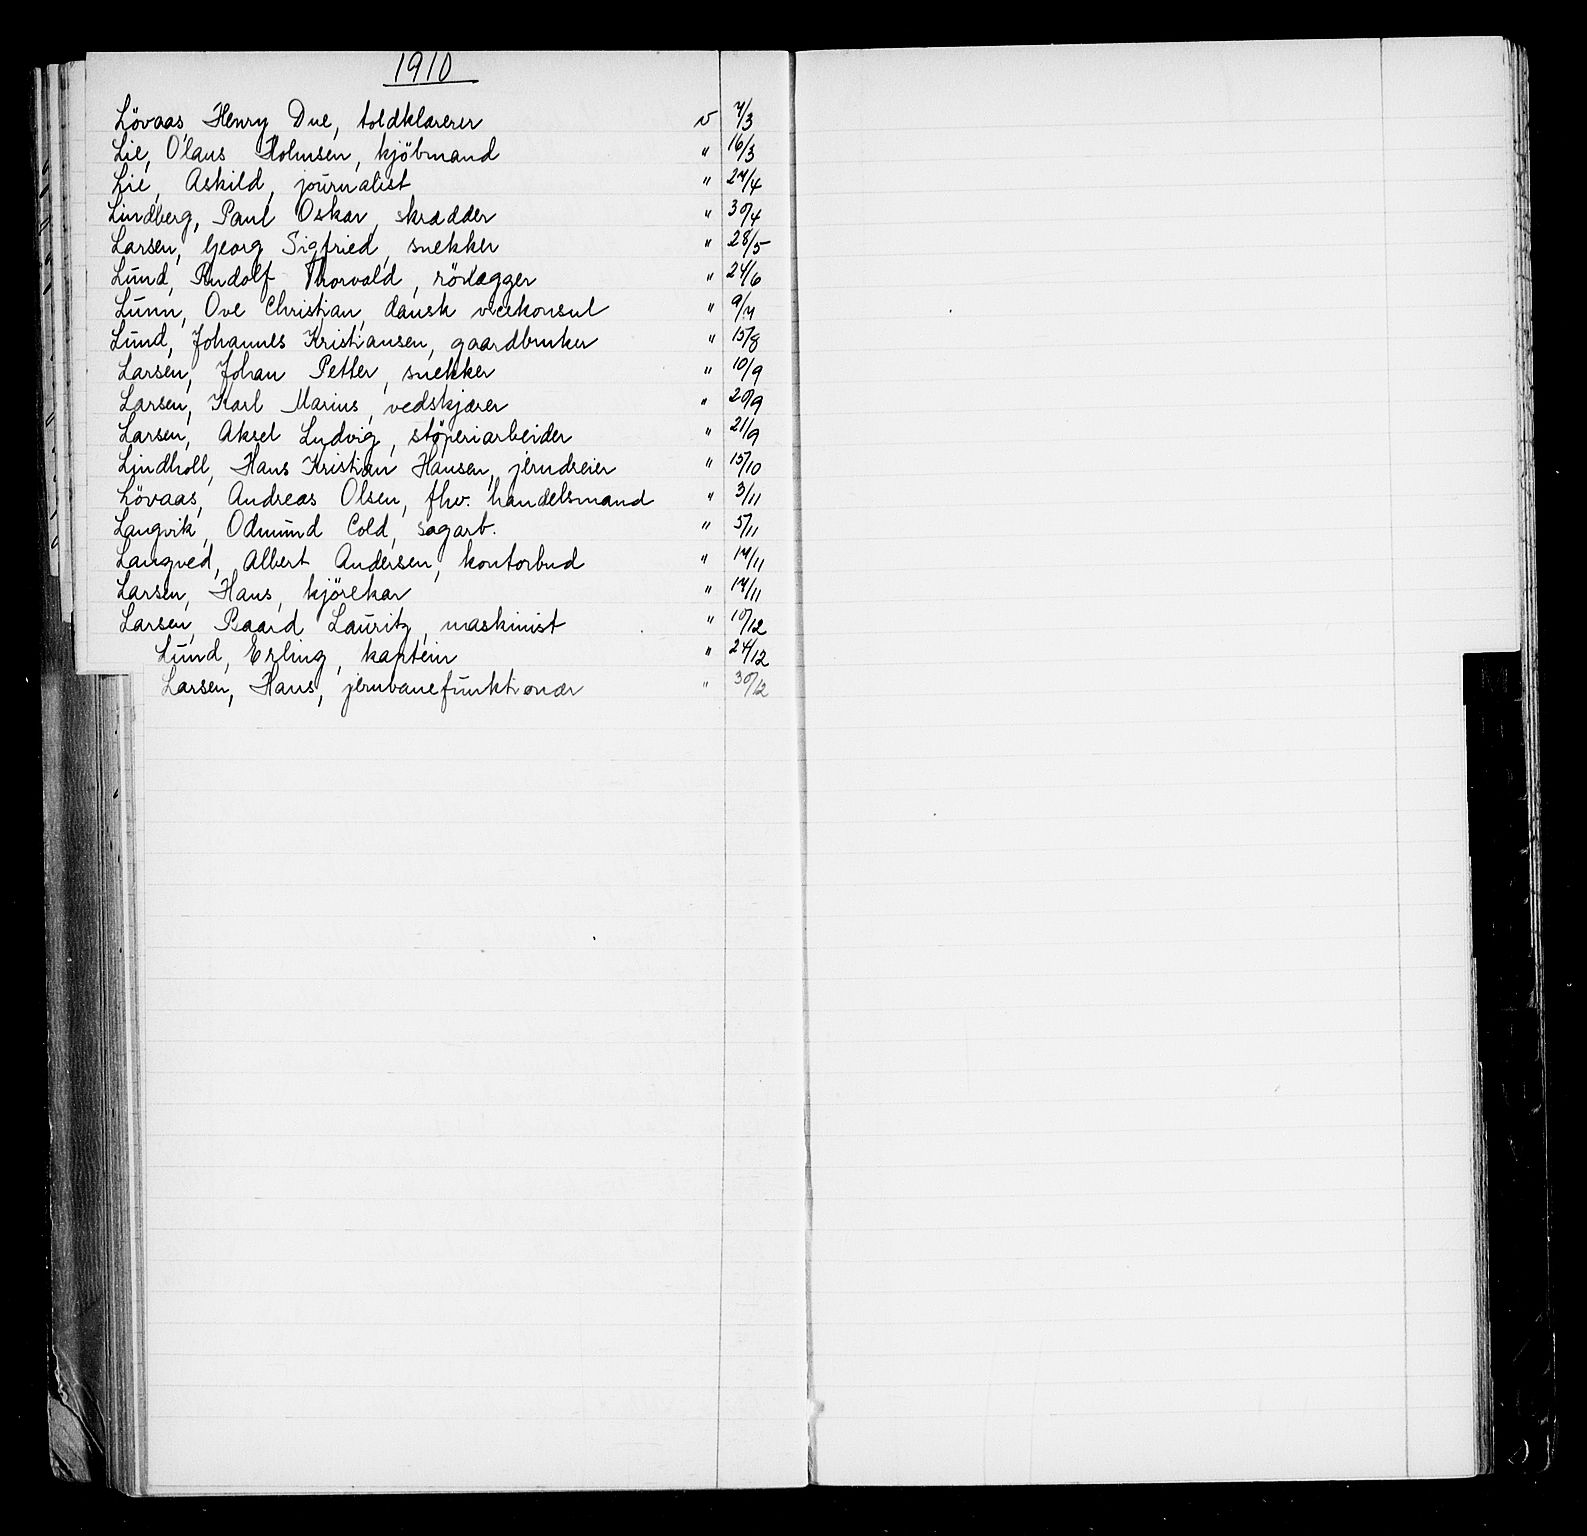 1910
Lövaas, Henry Due, toldklarerer v 7/3
Lie, Olaus Holmsen, kjöbmand " 16/3
Lie, Askild, journalist " 27/4
Lindberg, Paul Oskar, skrædder " 30/4
Larsen, Georg Sigfried, snekker " 28/5
Lund, Rudolf Thorvald, rörlægger " 24/6
Lunn, Ove Christian, dansk vicekonsul " 9/7
Lund, Johannes Kristiansen, gaardbruker " 15/8
Larsen, Johan Petter, snekker " 10/9
Larsen, Karl Marius, vedskjærer " 20/9
Larsen, Aksel Ludvig, støperiarbeider " 21/9
Lindholl, Hans Kristian Hansen, jerndreier " 15/10
Lövaas, Andreas Olsen, fhv. handelsmand " 3/11
Langvik, Odmund Cold, sagarb. " 5/11
Langved, Albert Andersen, kontorbud " 17/11
Larsen, Hans, kjörekar " 17/11
Larsen, Baard Lauritz, maskinist " 10/12
Lund, Erling, kaptein " 24/12
Larsen, Hans, jernbanefunktionær " 30/12